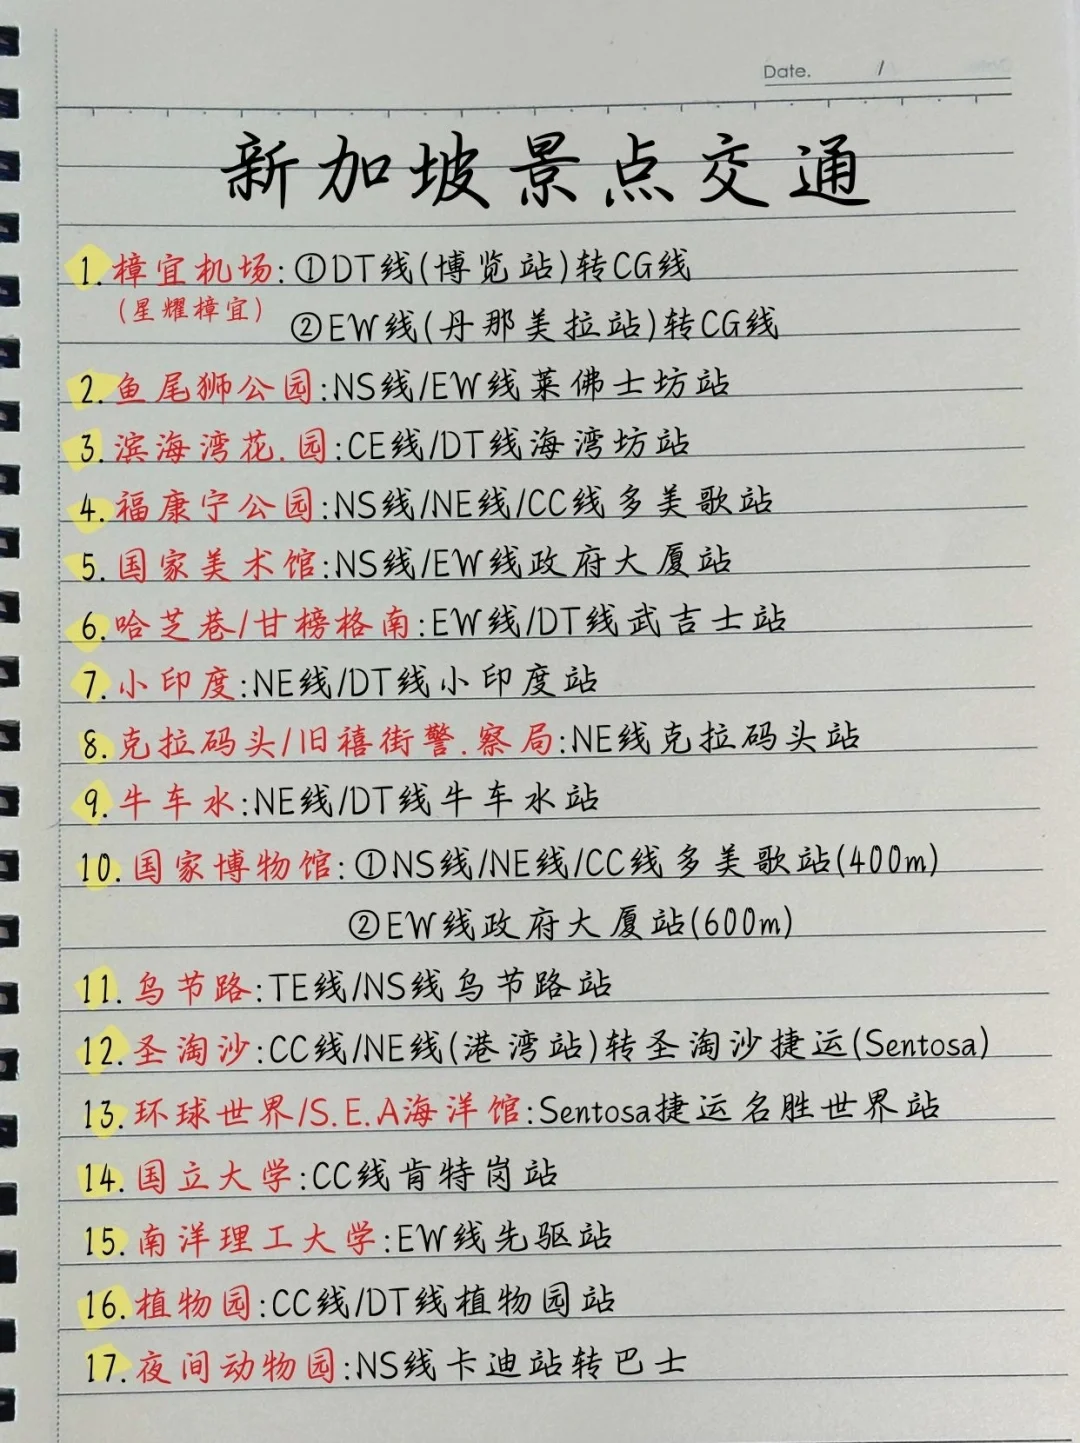 Date. /
新加坡景点交通
1. 樟宜机场: ①DT线(博览站)转CG线
(星耀樟宜)
②EW线(丹那美拉站)转CG线
2. 鱼尾狮公园:NS线/EW线莱佛士坊站
3. 滨海湾花.园:CE线/DT线海湾坊站
4. 福康宁公园:NS线/NE线/CC线多美歌站
5. 国家美术馆:NS线/EW线政府大厦站
6. 哈芝巷/甘榜格南:EW线/DT线武吉士站
7. 小印度:NE线/DT线小印度站
8. 克拉码头/旧禧街警.察局:NE线克拉码头站
9. 牛车水:NE线/DT线牛车水站
10. 国家博物馆: ①NS线/NE线/CC线多美歌站(400m)
②EW线政府大厦站(600m)
11. 乌节路:TE线/NS线乌节路站
12. 圣淘沙:CC线/NE线(港湾站)转圣淘沙捷运(Sentosa)
13. 环球世界/S.E.A海洋馆:Sentosa捷运名胜世界站
14. 国立大学:CC线肯特岗站
15. 南洋理工大学:EW线先驱站
16. 植物园:CC线/DT线植物园站
17. 夜间动物园:NS线卡迪站转巴士